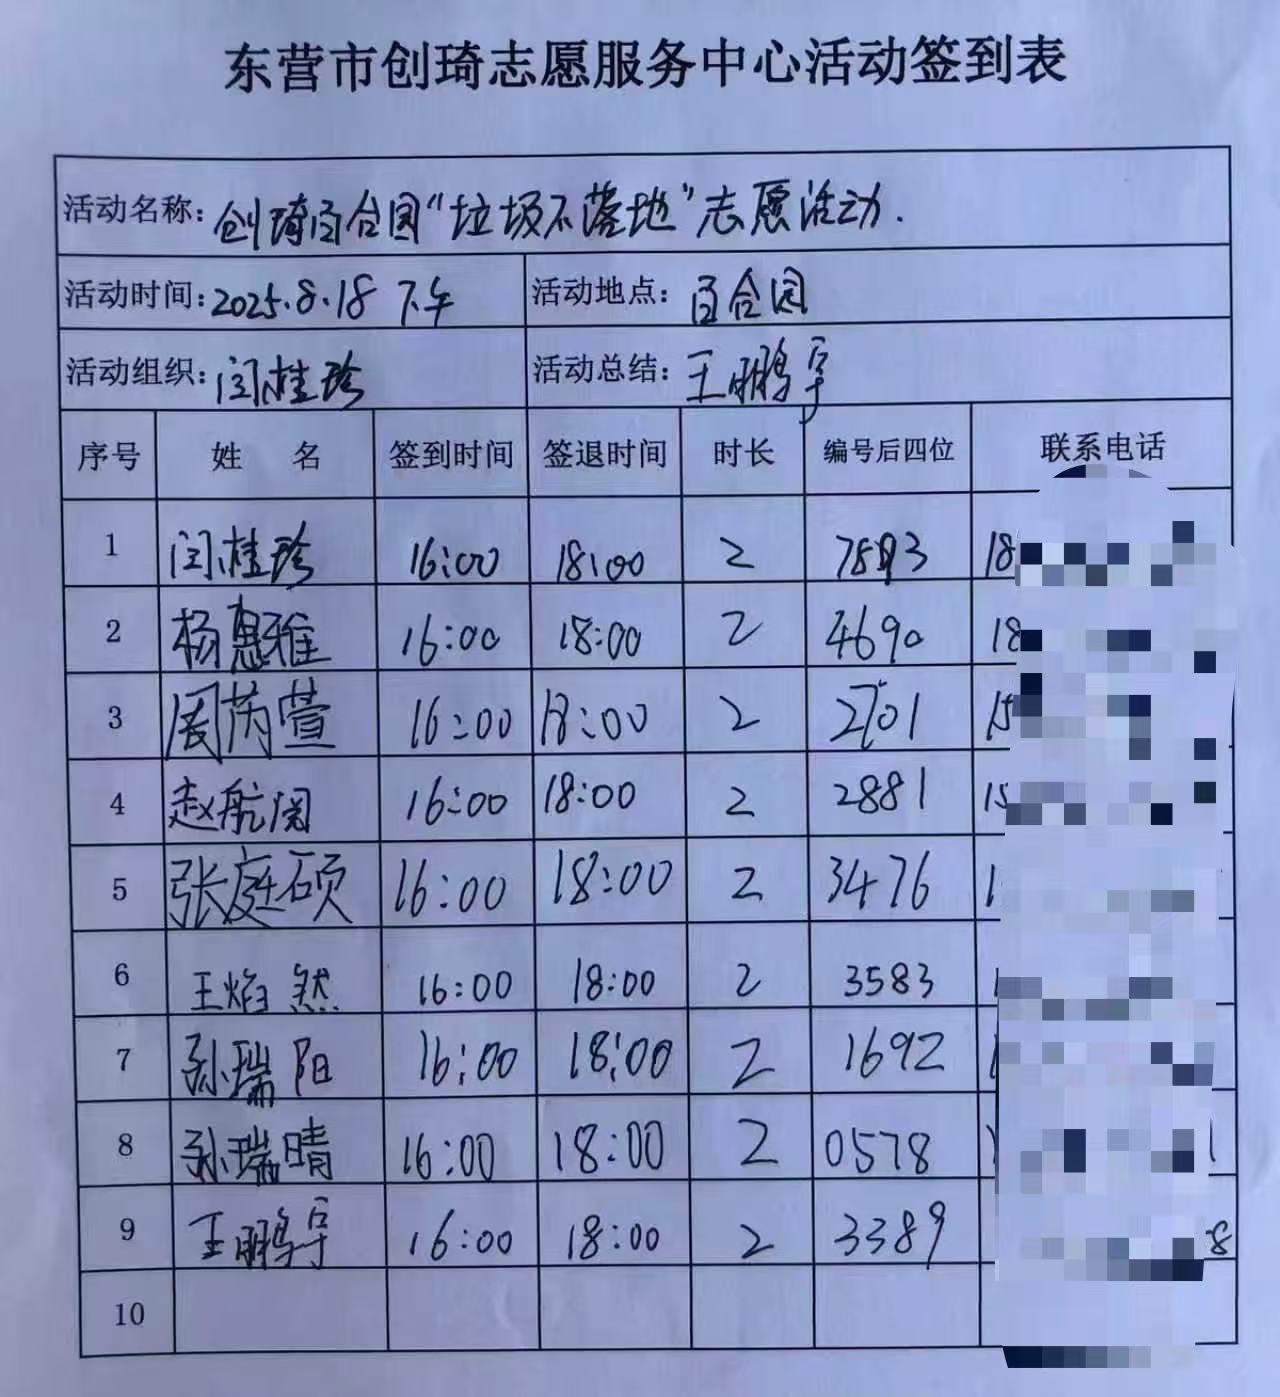 东营市创琦志愿服务中心活动签到表
活动名称：创琦百合园“垃圾不落地”志愿活动.
活动时间：2025.8.18 下午 活动地点：百合园
活动组织：闫桂珍 活动总结：王鹏宇
序号 姓 名 签到时间 签退时间 时长 编号后四位 联系电话
1 闫桂珍 16:00 18:00 2 18
2 杨惠雅 16:00 18:00 2 4690 18
3 周芮萱 16:00 18:00 2 2701 15
4 赵航阅 16:00 18:00 2 2881 15
5 张庭硕 16:00 18:00 2 3476 1
6 王焰然 16:00 18:00 2 3583 1
7 孙瑞阳 16:00 18:00 2 1692
8 孙瑞晴 16:00 18:00 2 0578 1
9 王鹏宇 16:00 18:00 2 3389 8
10